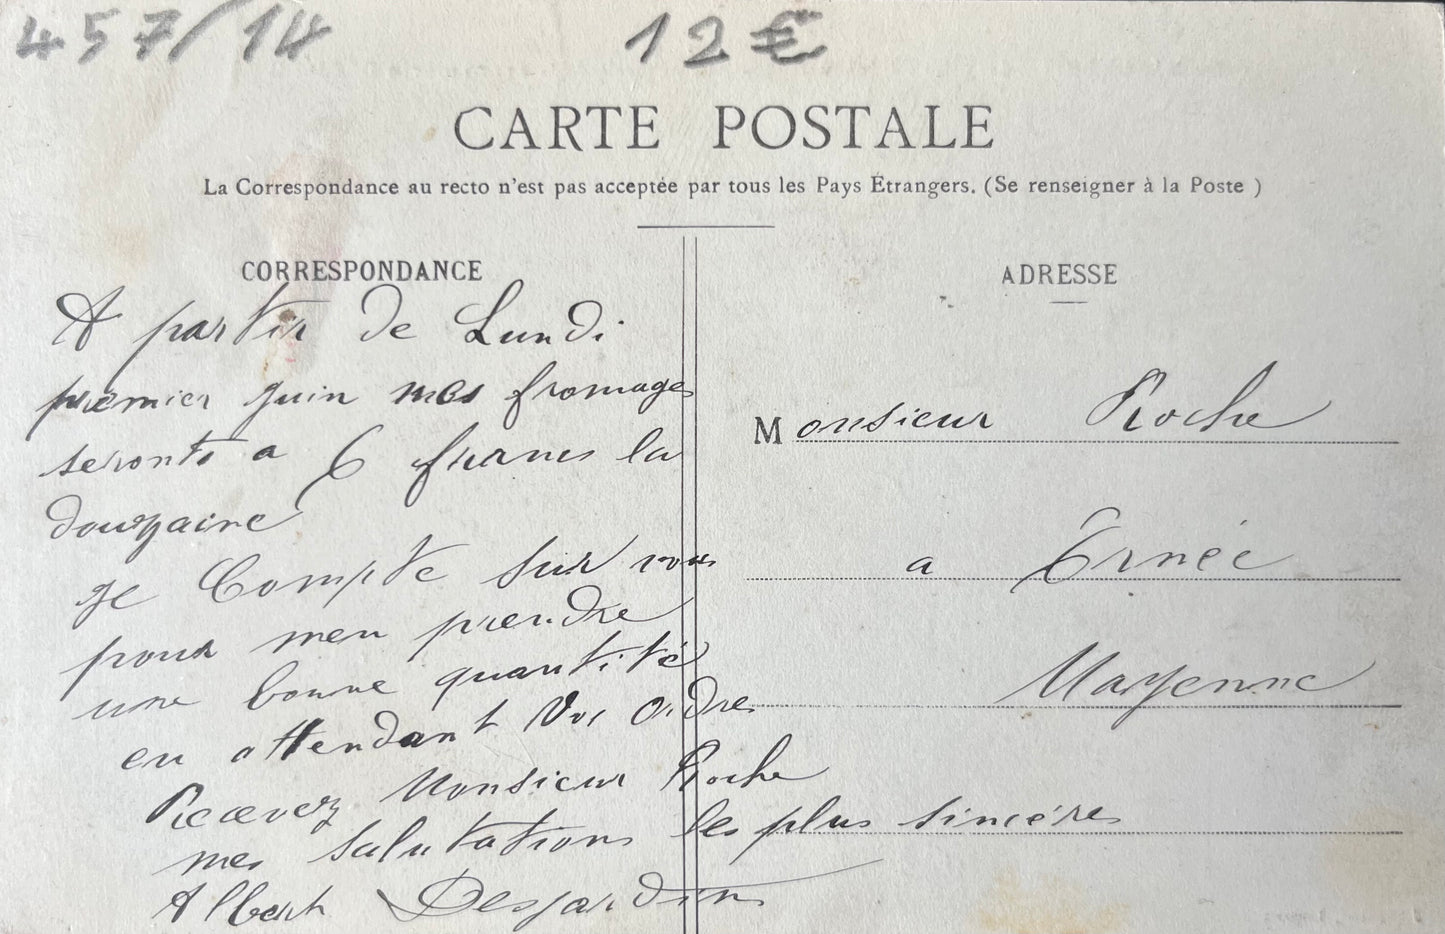 457/14
12 €
CARTE POSTALE
La Correspondance au recto n'est pas acceptée par tous les Pays Étrangers. (Se renseigner à la Poste )
CORRESPONDANCE
A partir de Lundi
premier juin mes fromages
seronts a 6 francs la
douzaine
je Compte sur vous
pour men prendre
une bonne quantité
en attendant Vos ordres
Recevez Monsieur Roche
mes salutations les plus sincéres
Albert Desjardins
ADRESSE
Monsieur Roche
a Ernée
Mayenne